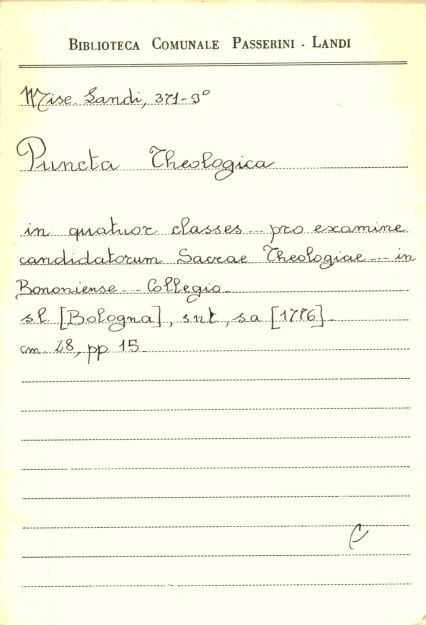 BIBLIOTECA COMUNALE PASSERINI - LANDI
Misc. Landi, 371-9°
Puncta Theologica
in quatuor classes ... pro examine
candidatorum Sacrae Theologiae ... in
Bononiense ... Collegio.
sl [Bologna], snt, sa [1776].
cm 28, pp 15.
C